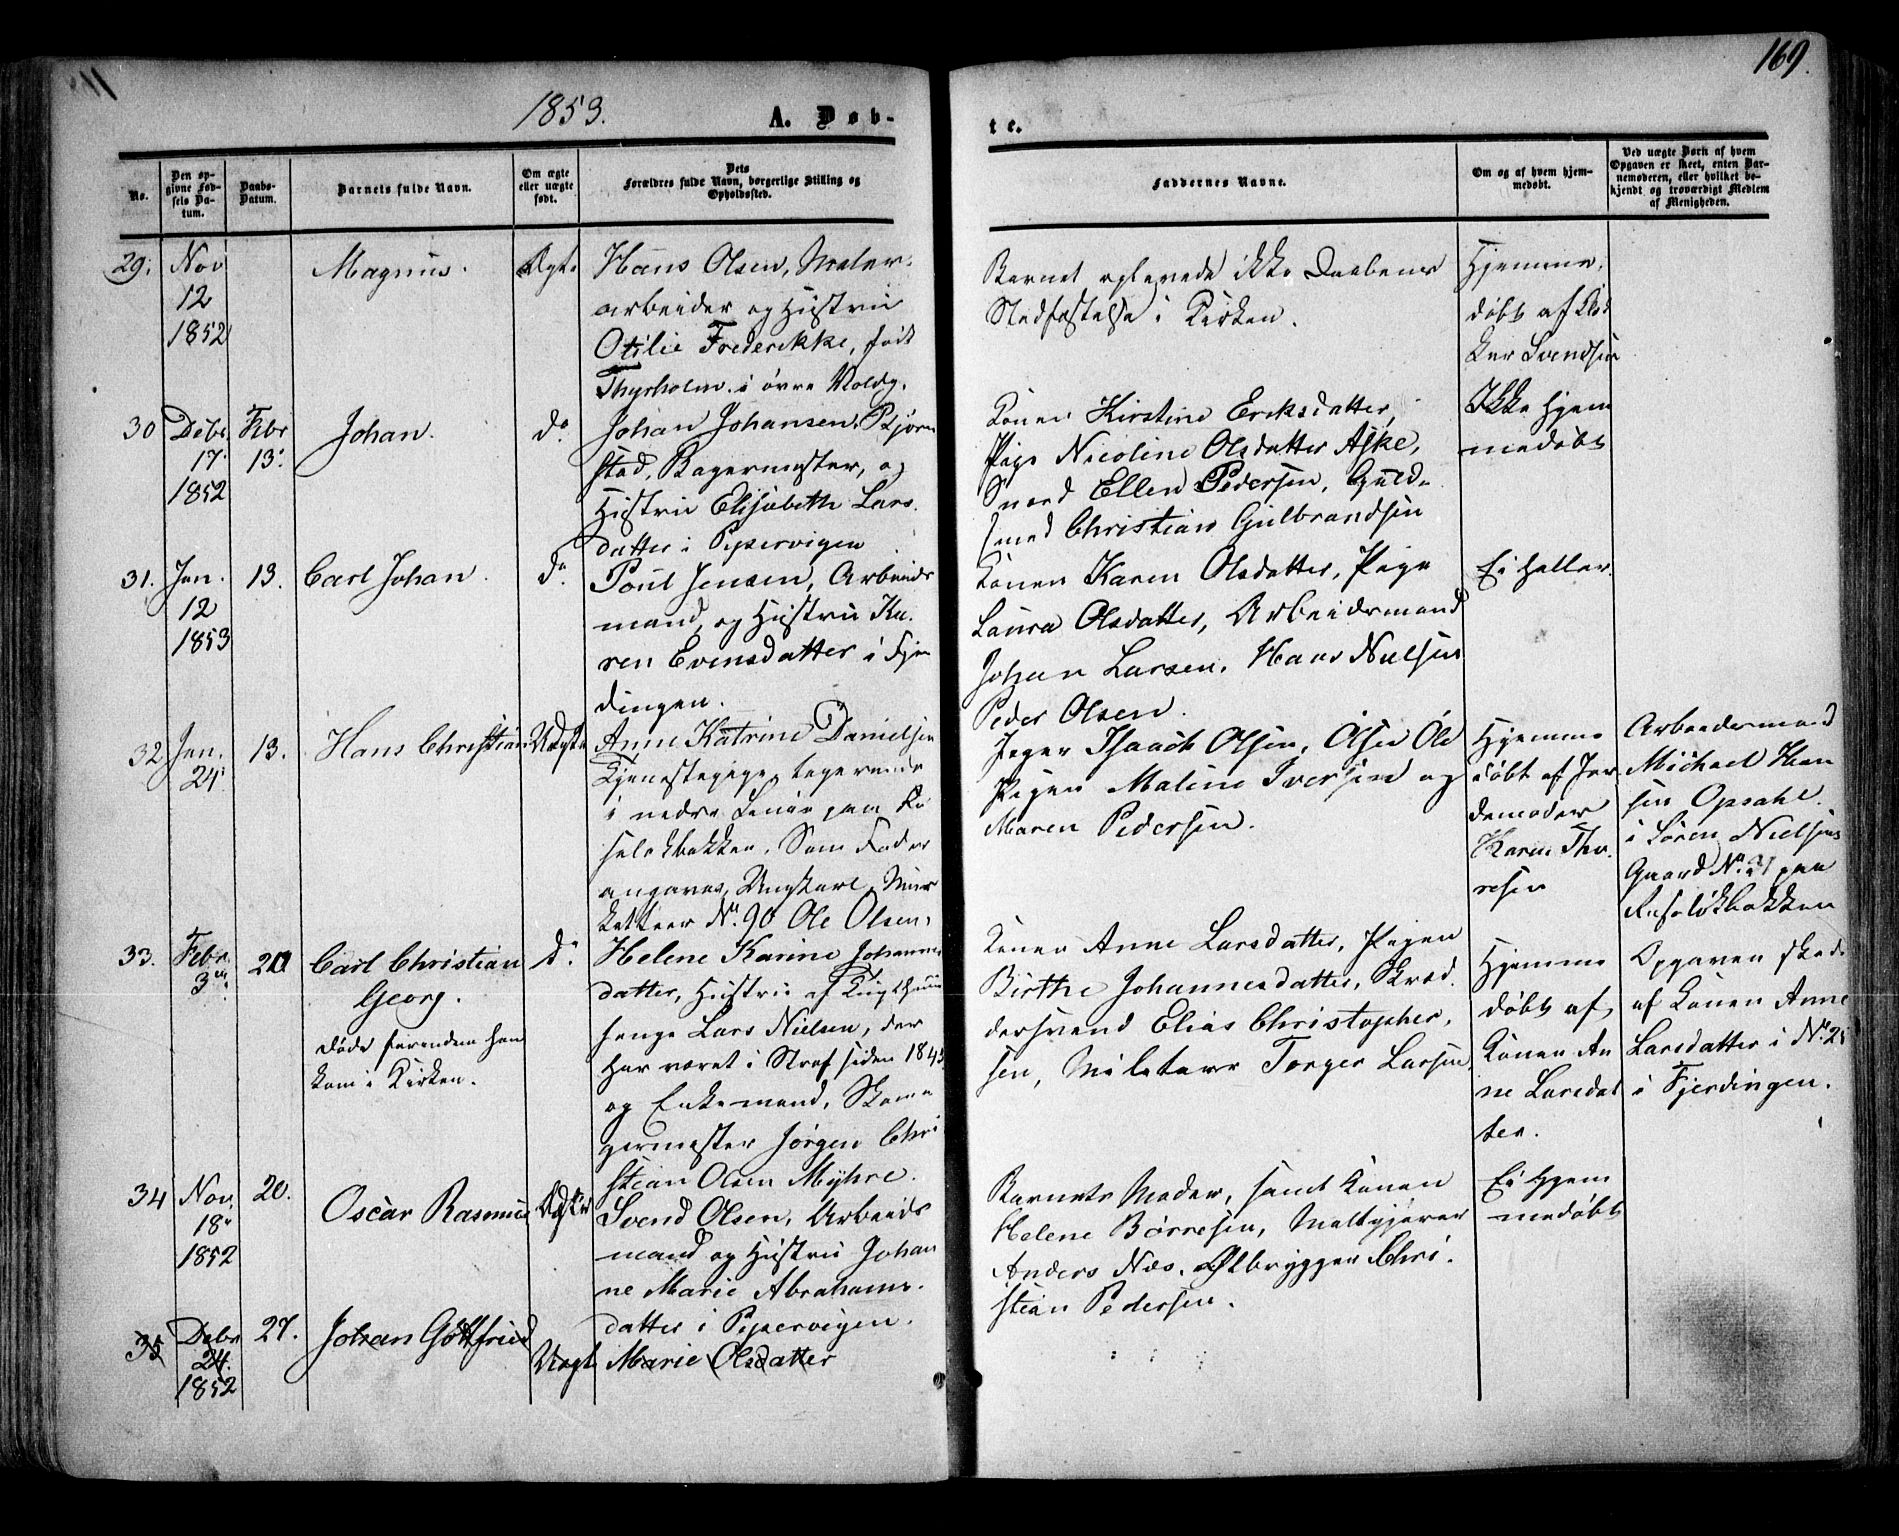 1853.
A. Døb-
te.
169.
No.
Den op-
givne Fød-
sels Da-
tum.
Daabs-
Datum.
Barnets fulde Navn.
Om ægte
eller uægte
født.
Dets
Forældres fulde Navn, borgerlige Stilling og
Opholdssted.
Faddernes Navne.
Om og af hvem hjem-
medøbt.
Ved uægte Børn af hvem
Opgaven er skeet, enten Bar-
nemoderen, eller hvilket be-
kjendt og troværdigt Medlem
af Menigheden.
29.
Nov
12
1852
Magnus.
Ægte
Hans Olsen, Maler-
arbeider og Hustru
Otilie Frederikke, født
Thyrholm i øvre Voldg.
Barnet oplevede ikke Daabens
Stadfæstelse i Kirken.
Hjemme-
døbt af Klok
ker Svendsen
30
Debr
17
1852
Febr
13.
Johan.
do
Johan Johansen Bjørn
stad, Bagermester, og
Hustru Elisabeth Lars-
datter i Pipervigen
Konen Kirstine Eriksdatter,
Pige Nicoline Olsdatter Aske,
Ellen Pedersen, Guld-
smed Christian Gulbrandsen
Ikke hjem
medøbt
31.
Jan.
12
1853
13.
Carl Johan
do
Poul Jensen, Arbeids
mand, og Hustru Ka-
ren Evensdatter i Fjer
dingen.
Konen Karen Olsdatter, Pige
Laura Olsdatter, Arbeidsmand
Johan Larsen, Hans Nielsen
Peder Olsen.
Ei heller.
32
Jan.
24
13.
Hans Christian
Uægte
Anne Katrine Danielsen
Tjenestepige, logerende
i nedre paa Ru
seløkbakken. Som Fader
angaves, Ungkarl, Mus
ketteer No. 90 Ole Olsen.
Isaach Olsen, Ole
Pigen Maline Iversen og
Maren Pedersen.
Hjemme
døbt af Jor
demoder
Karen Tho-
resen
Arbeidsmand
Michael Han
sen Opsahl
i Søren Nielsens
Gaard No. 21 paa
Ruseløkbakken
33.
Febr.
3
20
Carl Christian
Georg.
Døde forenden han
kom i Kirken.
do
Helene Karine Johannes
datter, Hustru af Tugthuus
fange Lars Nielsen, der
har været i Straf siden 1845
og Enkemand, Skoma
germester Jørgen Chri
stian Olsen Myhre.
Konen Anne Larsdatter, Pigen
Birthe Johannesdatter, Skræd.
dersvend Elias Christopher,
sen, Militær Torger Larsen
Hjemme
døbt af
Konen An
ne Larsdat
ter.
Opgaven skede
af Konen Anne
Larsdatter i No. 25
i Fjerdingen.
34
Nov.
18
1852
20.
Oscar Rasmus
Ægte
Svend Olsen, Arbeids
mand og Hustru Johan
ne Marie Abrahams-
datter i Pipervigen.
Barnets Moder, samt Konen
Helene Børresen, Maltgjører
Anders Næs, Ølbrygger Chri-
stian Pedersen.
Ei hjem
medøbt
35
Debr
24.
1852
27.
Johan Gottfried
Uægt
Marie Olsdatter